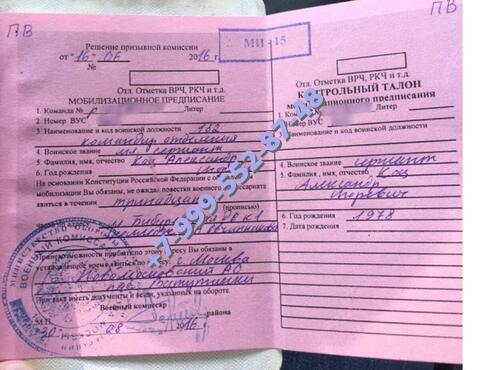 ПВ
ПВ
Решение призывной комиссии
от "16" 06 2016 г.
№
МП - 15
Отл. Отметка ВРЧ, РКЧ и т.д.
МОБИЛИЗАЦИОННОЕ ПРЕДПИСАНИЕ
1. Команда № Литер
2. Номер ВУС
3. Наименование и код воинской должности 182
командир отделения
4. Воинское звание мл. сержант
5. Фамилия, имя, отчество Кац Александр
6. Год рождения
На основании Конституции Российской Федерации
мобилизации Вы обязаны, не ожидая повестки военного комиссариата
явиться в течении
(прописью)
Вы обязаны в
установленное время явиться по г. Москва
Новомосковский АО
При явке иметь документы и вещи, указанных на обороте.
Военный комиссар
района
М.П.
"30" 08 2016 г.
Отл. Отметка ВРЧ, РКЧ и т.д.
КОНТРОЛЬНЫЙ ТАЛОН
мобилизационного предписания
1. Команда № Литер
2. Номер ВУС
3. Наименование и код воинской должности
4. Воинское звание сержант
5. Фамилия, имя, отчество Кац
Александр
Игоревич
6. Год рождения 1978
7. Дата рождения
+7-999-552-87-48